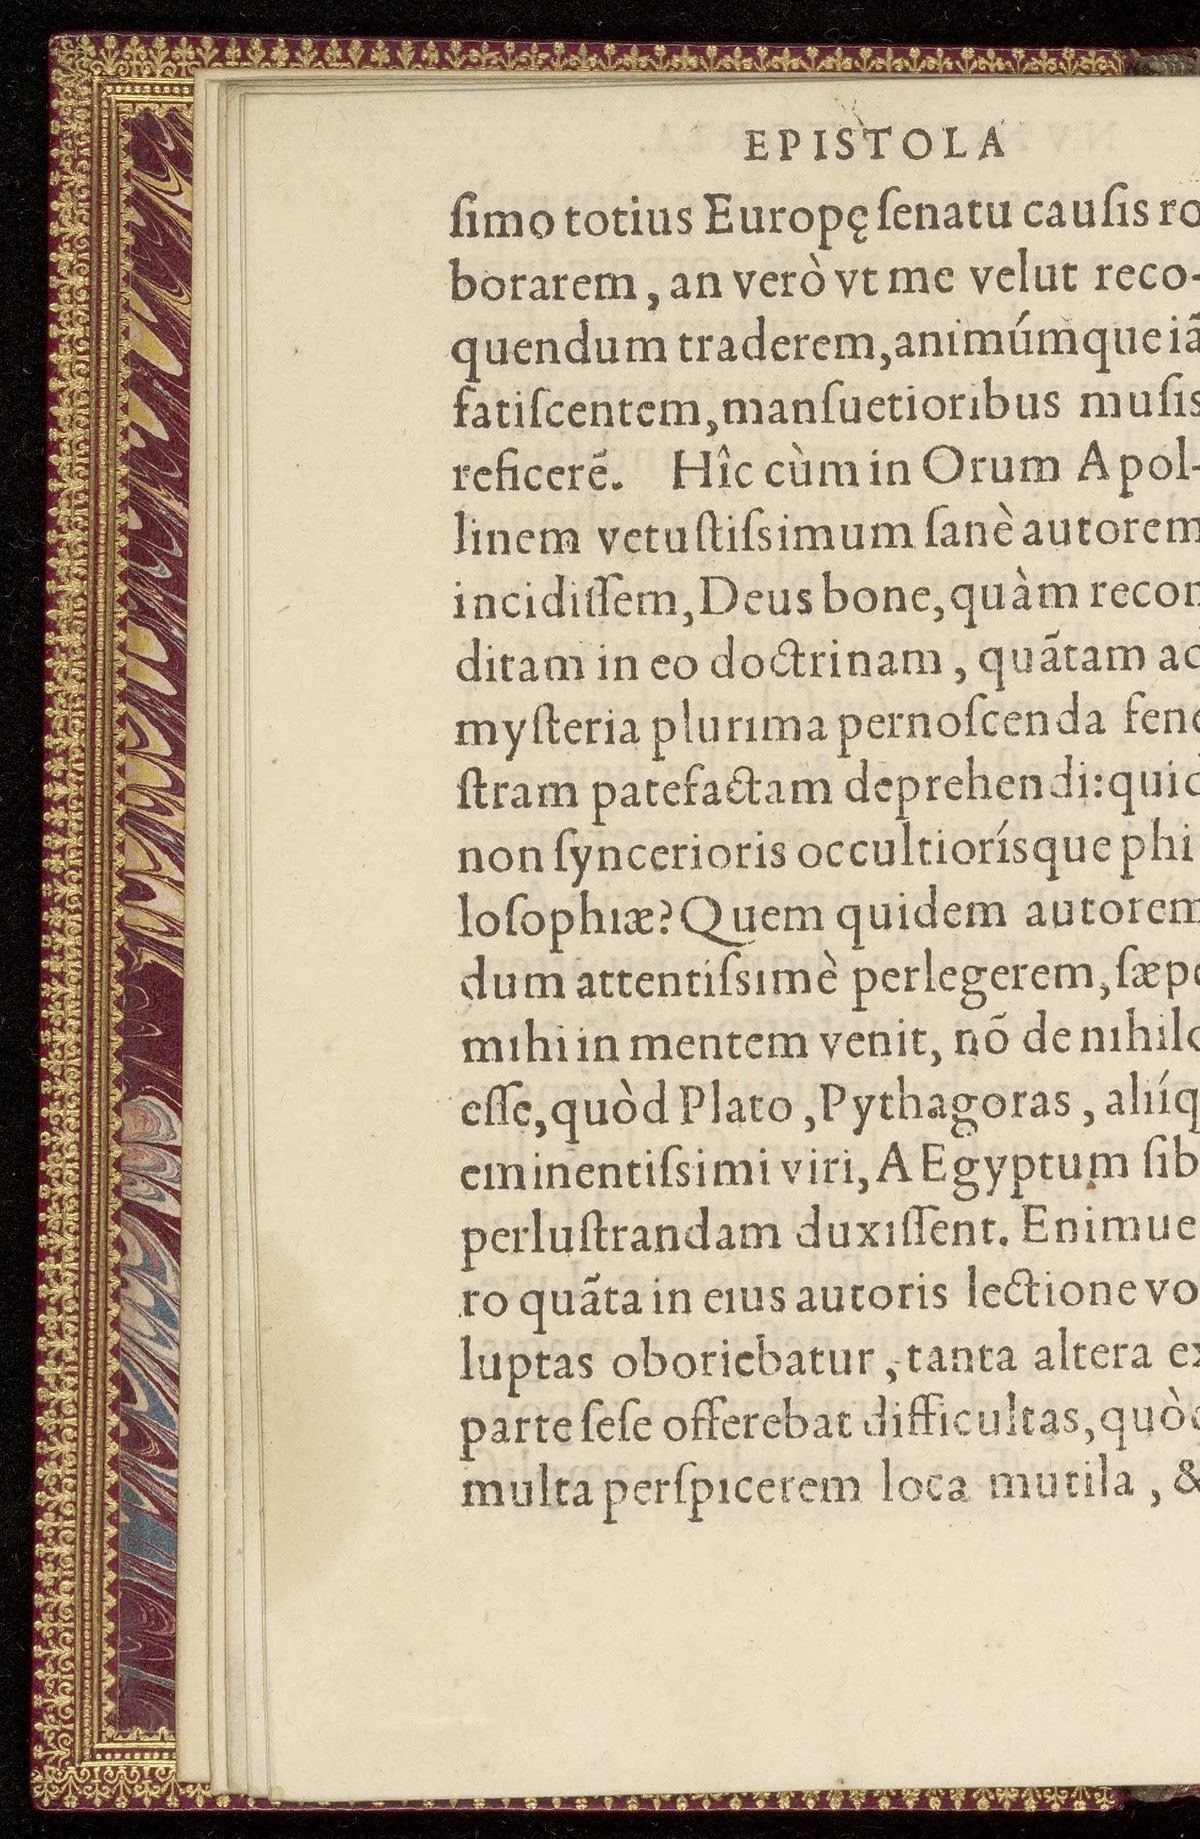 EPISTOLA
ſimo totius Europę ſenatu cauſis ro
borarem, an verò vt me velut reco-
quendum traderem, animúmque iã
fatiſcentem, manſuetioribus muſis
reficerẽ. Hîc cùm in Orum Apol-
linem vetuſtiſsimum ſanè autorem
incidiſſem, Deus bone, quàm recon
ditam in eo doctrinam, quãtam ad
myſteria plurima pernoſcenda fene
ſtram patefactam deprehendi: quid
non ſyncerioris occultiorísque phi
loſophiæ? Quem quidem autorem
dum attentiſsimè perlegerem, ſæpe
mihi in mentem venit, nõ de nihilo
eſſe, quòd Plato, Pythagoras, aliíq
eminentiſsimi viri, AEgyptum ſib
perluſtrandam duxiſſent. Enimue
ro quãta in eius autoris lectione vo
luptas oboriebatur, tanta altera ex
parte ſeſe offerebat difficultas, quòd
multa perſpicerem loca mutila, &